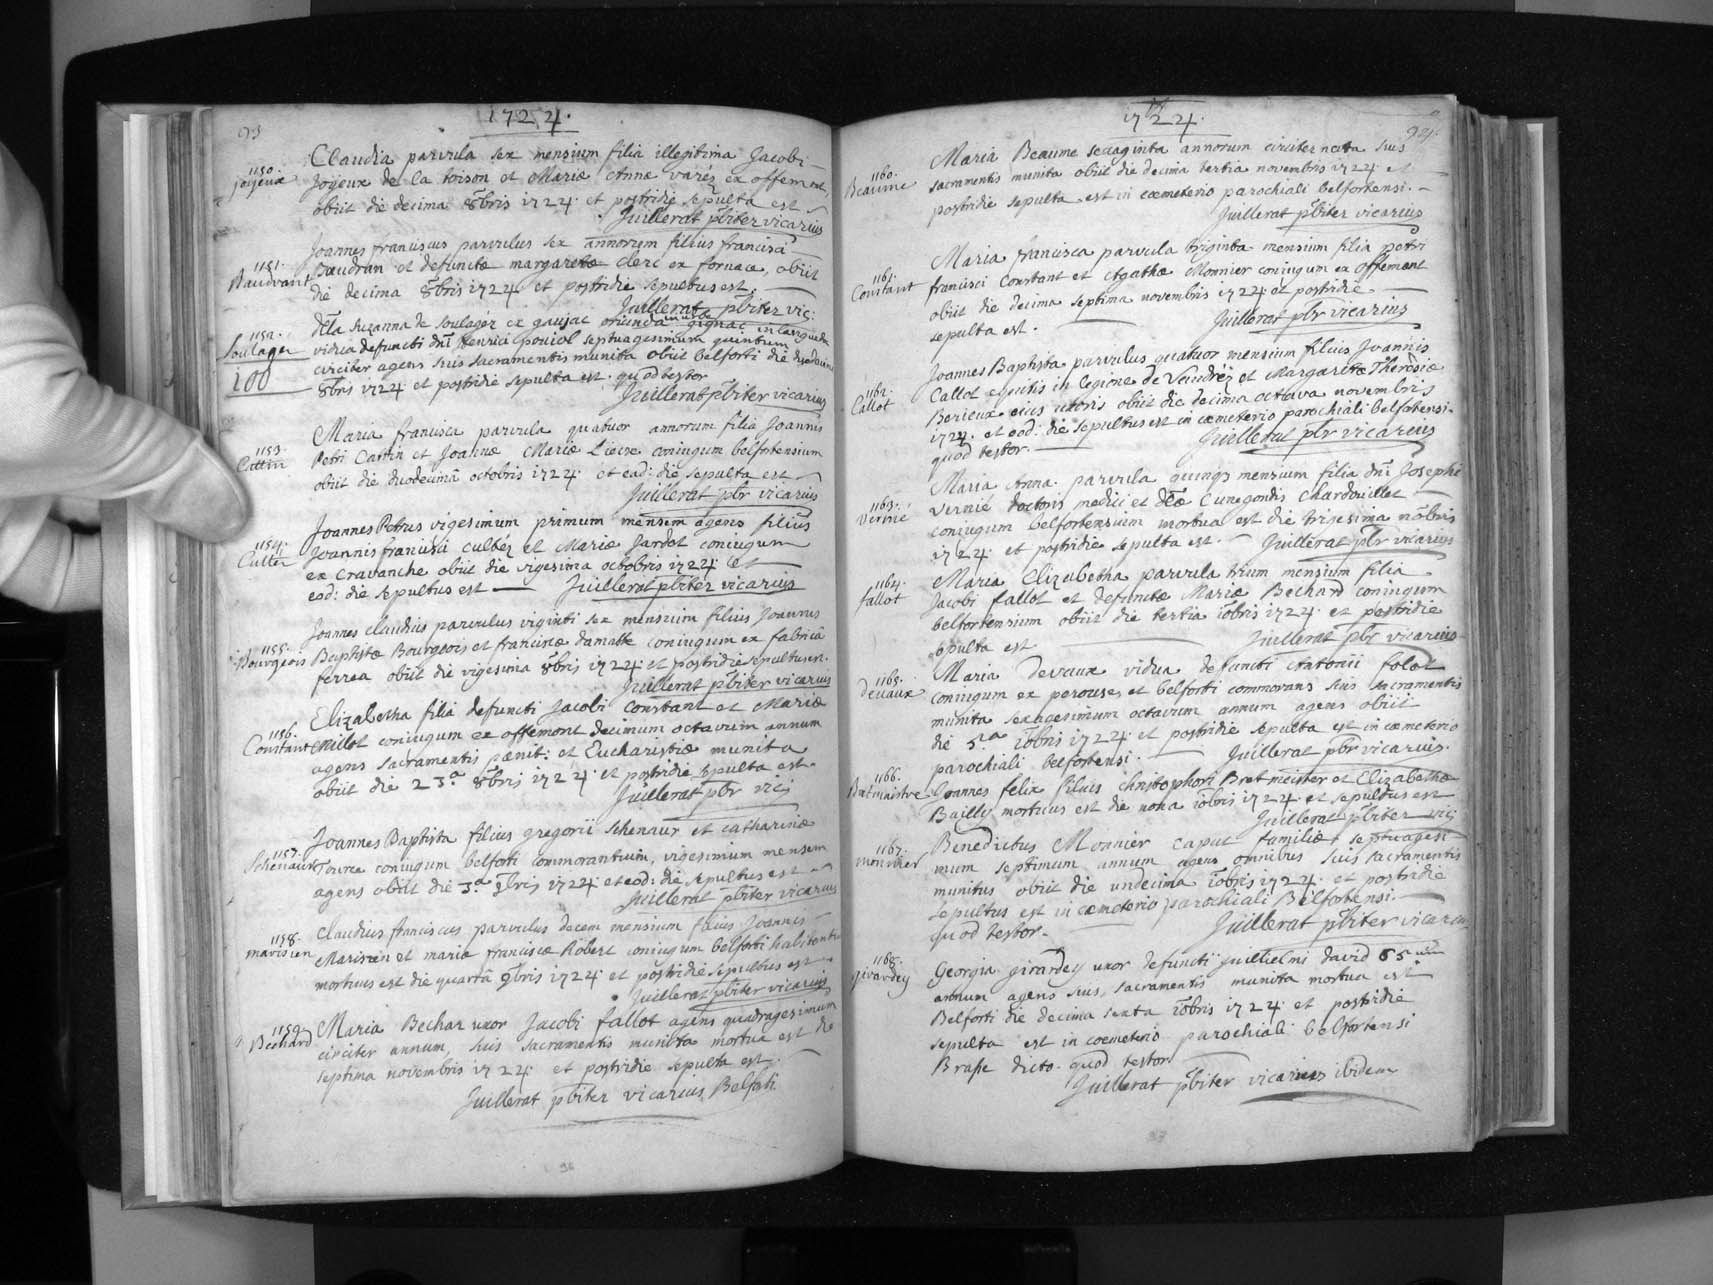 93
1724.
1150.
joyeux
Claudia parvula sex mensium filia illegitima Jacobi
Joyeux de la toison et Mariæ Annæ varez ex offemont,
obiit die decima 8bris 1724. et postridie sepulta est
Juillerat pbiter vicarius
1151.
Baudrant
Joannes franciscus parvulus sex annorum filius francisci
Baudran et defunctæ margaretæ clerc ex fornace, obiit
die decima 8bris 1724 et postridie sepultus est.
Juillerat pbiter vic:
1152.
Soulager
100
Dlla Suzanna de Soulagéz ex gaujac oriunda gignac in languedoc
vidua defuncti dni henrici septuagesimum quintum
circiter agens suis sacramentis munita obiit belforti die duodecima
8bris 1724 et postridie sepulta est. quod testor
Juillerat pbiter vicarius
1153.
Cattin
Maria francisca parvula quatuor annorum filia Joannis
Petri Cattin et Joannæ Mariæ coniugum belfortensium
obiit die duodecimâ octobris 1724. et ead: die sepulta est
Juillerat pbr vicarius
1154.
Cuttér
Joannes Petrus vigesimum primum mensem agens filius
Joannis francisci cuttéz et Mariæ Jardot coniugum
ex cravanche obiit die vigesima octobris 1724. et
eod: die sepultus est — Juillerat pbiter vicarius
1155.
Bourgeois
Joannes claudius parvulus viginti sex mensium filius Joannis
Baptistæ Bourgeois et franciscæ damotte coniugum ex fabrica
ferrea obiit die vigesima 8bris 1724. et postridie sepultus est.
Juillerat pbiter vicarius
1156.
Constant
Elizabetha filia defuncti Jacobi Constant et Mariæ
Millot coniugum ex offemont decimum octavum annum
agens sacramentis pænit: et Eucharistiæ munita
obiit die 23.a 8bris 1724. et postridie sepulta est.
Juillerat pbr vic:
1157.
Schenaur
Joannes Baptista filius gregorii Schenaur et catharinæ
Source coniugum belforti commorantium, vigesimum mensem
agens obiit die 3.a 9bris 1724. et eod: die sepultus est
Juillerat pbiter vicarius
1158.
marisien
Claudius franciscus parvulus decem mensium filius Joannis
Marisien et maria franciscæ Robert coniugum belforti habitantium
mortuus est die quartâ 9bris 1724. et postridie sepultus est
Juillerat pbiter vicarius
1159.
Bechard
Maria Bechar uxor Jacobi fallot agens quadragesimum
circiter annum, suis sacramentis munita mortua est die
septima novembris 1724. et postridie sepulta est.
Juillerat pbiter vicarius Belforti
96
1724.
94.
1160.
Beaume
Maria Beaume sexaginta annorum circiter nata suis
sacramentis munita obiit die decima tertia novembris 1724. et
postridie sepulta est in cœmeterio parochiali belfortensi.
Juillerat pbiter vicarius
1161.
Constant
Maria francisca parvula triginta mensium filia petri
francisci Constant et Agathæ Monnier coniugum ex offemont
obiit die decima septima novembris 1724. et postridie
sepulta est.
Juillerat pbr vicarius
1162.
Callot
Joannes Baptista parvulus quatuor mensium filius Joannis
Callot equitis in legione de Vaudréz et Margaritæ Theresiæ
Berieux eius uxoris obiit die decima octava novembris
1724. et eod: die sepultus est in cœmeterio parochiali belfortensi.
quod testor. — Juillerat pbr vicarius
1163.
Vernié
Maria Anna parvula quinqs mensium filia dni Josephi
Vernié doctoris medici et dllæ Cunegondis Chardouillet
coniugum belfortensium mortua est die trigesima nobris
1724. et postridie sepulta est. — Juillerat pbr vicarius
1164.
fallot
Maria Elizabetha parvula trium mensium filia
Jacobi fallot et defunctæ Mariæ Bechard coniugum
belfortensium obiit die tertia iobris 1724. et postridie
sepulta est. Juillerat pbr vicarius
1165.
devaux
Maria devaux vidua defuncti Antonii folot
coniugum ex perouse, et belforti commorans suis sacramentis
munita sexagesimum octavum annum agens obiit
die 5.a iobris 1724. et postridie sepulta est in cœmeterio
parochiali belfortensi. Juillerat pbr vicarius.
1166.
Bretministre
Joannes felix filius christophori Bretmeister et Elizabethæ
Bailly mortuus est die nona iobris 1724. et sepultus est
Juillerat pbiter vic:
1167.
monnier
Benedictus Monnier caput familiæ septuagesi
mum septimum annum agens omnibus suis sacramentis
munitus obiit die undecima iobris 1724. et postridie
sepultus est in cœmeterio parochiali Belfortensi.
quod testor. Juillerat pbiter vicarius
1168.
girardey
Georgia girardey uxor defuncti guillielmi david 65um
annum agens suis, sacramentis munita mortua est
Belforti die decima sexta iobris 1724. et postridie
sepulta est in coemeterio parochiali belfortensi
Brasse dicto. quod testor
Juillerat pbiter vicarius ibidem
97